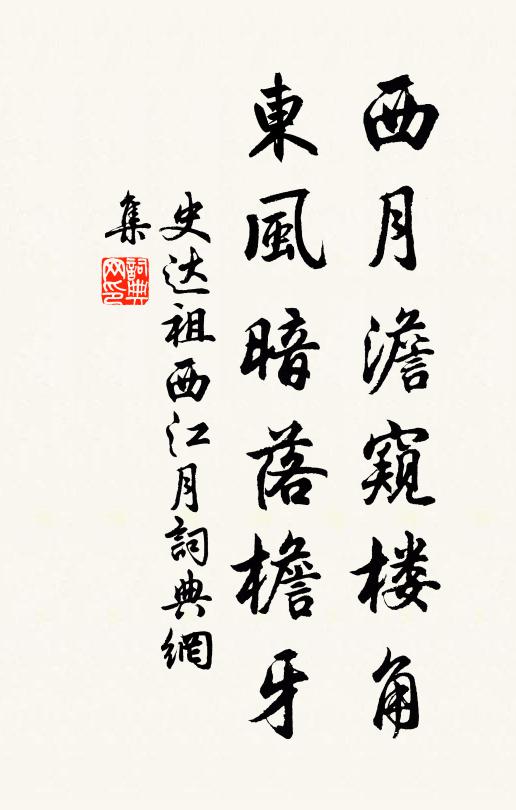 西月澹窺楼角
東風暗落檐牙
史达祖西江月詞典網
集
詞典网印